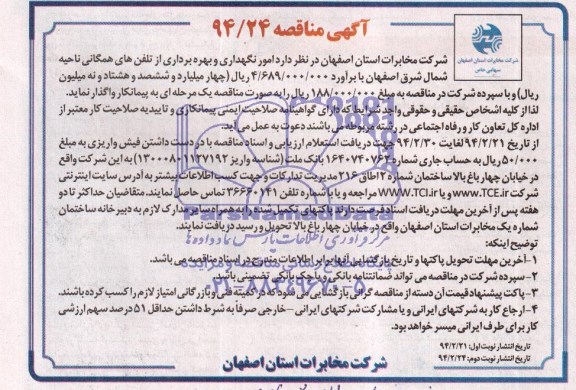 آگهی مناقصه ۹۴/۲۴
شرکت مخابرات استان اصفهان
سهامی خاص
شرکت مخابرات استان اصفهان در نظر دارد امور نگهداری و بهره برداری از تلفن های همگانی ناحیه
شمال شرق اصفهان با برآورد ۴/۶۸۹/۰۰۰/۰۰۰ ریال (چهار میلیارد و ششصد و هشتاد و نه میلیون
ریال) و با سپرده شرکت در مناقصه به مبلغ ۱۸۸/۰۰۰/۰۰۰ ریال را به صورت مناقصه یک مرحله ای به پیمانکار واگذار نماید.
لذا از کلیه اشخاص حقیقی و حقوقی واجد شرایط که دارای گواهینامه صلاحیت ایمنی پیمانکاری و تاییدیه صلاحیت کار معتبر از
اداره کل تعاون کار و رفاه اجتماعی در رشته مربوطه می باشند دعوت به عمل می آید.
از تاریخ ۹۴/۲/۲۱ لغایت ۹۴/۲/۳۰ جهت دریافت استعلام ارزیابی و اسناد مناقصه با در دست داشتن فیش واریزی به مبلغ
۵۰/۰۰۰ ریال به حساب جاری شماره ۱۶۴۰۷۴۰۷۶۴ بانک ملت (شناسه واریز ۱۳۰۰۰۸۰۱۱۲۷۱۹۲) به این شرکت واقع
در خیابان چهار باغ بالا ساختمان شماره ۲ اطاق ۲۱۶ مدیریت تدارکات و جهت کسب اطلاعات بیشتر به آدرس سایت اینترنتی
شرکت www.TCE.ir و یا WWW.TCI.ir مراجعه و یا با شماره تلفن ۳۶۶۶۰۷۴۱ تماس حاصل نمایند. متقاضیان حداکثر تا دو
هفته پس از آخرین مهلت دریافت اسناد فرصت دارند پاکتهای تکمیل شده را به همراه سایر مدارک لازم به دبیرخانه ساختمان
شماره یک مخابرات استان اصفهان واقع در خیابان چهار باغ بالا تحویل و رسید دریافت نمایند.
توضیح اینکه:
۱-آخرین مهلت تحویل پاکتها و تاریخ بازگشایی آنها برابر اطلاعات مندرج در اسناد مناقصه می باشد.
۲- سپرده شرکت در مناقصه می تواند ضمانتنامه بانکی و یا چک بانکی تضمینی باشد.
۳- پاکت پیشنهاد قیمت آن دسته از مناقصه گرانی بازگشایی می شود که در کمیته فنی و بازرگانی امتیاز لازم را کسب کرده باشند.
۴-ارجاع کار به شرکتهای ایرانی و یا مشارکت شرکتهای ایرانی - خارجی صرفاً به شرط داشتن حداقل ۵۱ درصد سهم ارزشی
کار برای طرف ایرانی میسر خواهد بود.
تاریخ انتشار نوبت اول: ۹۴/۲/۲۱
تاریخ انتشار نوبت دوم: ۹۴/۲/۲۴
شرکت مخابرات استان اصفهان